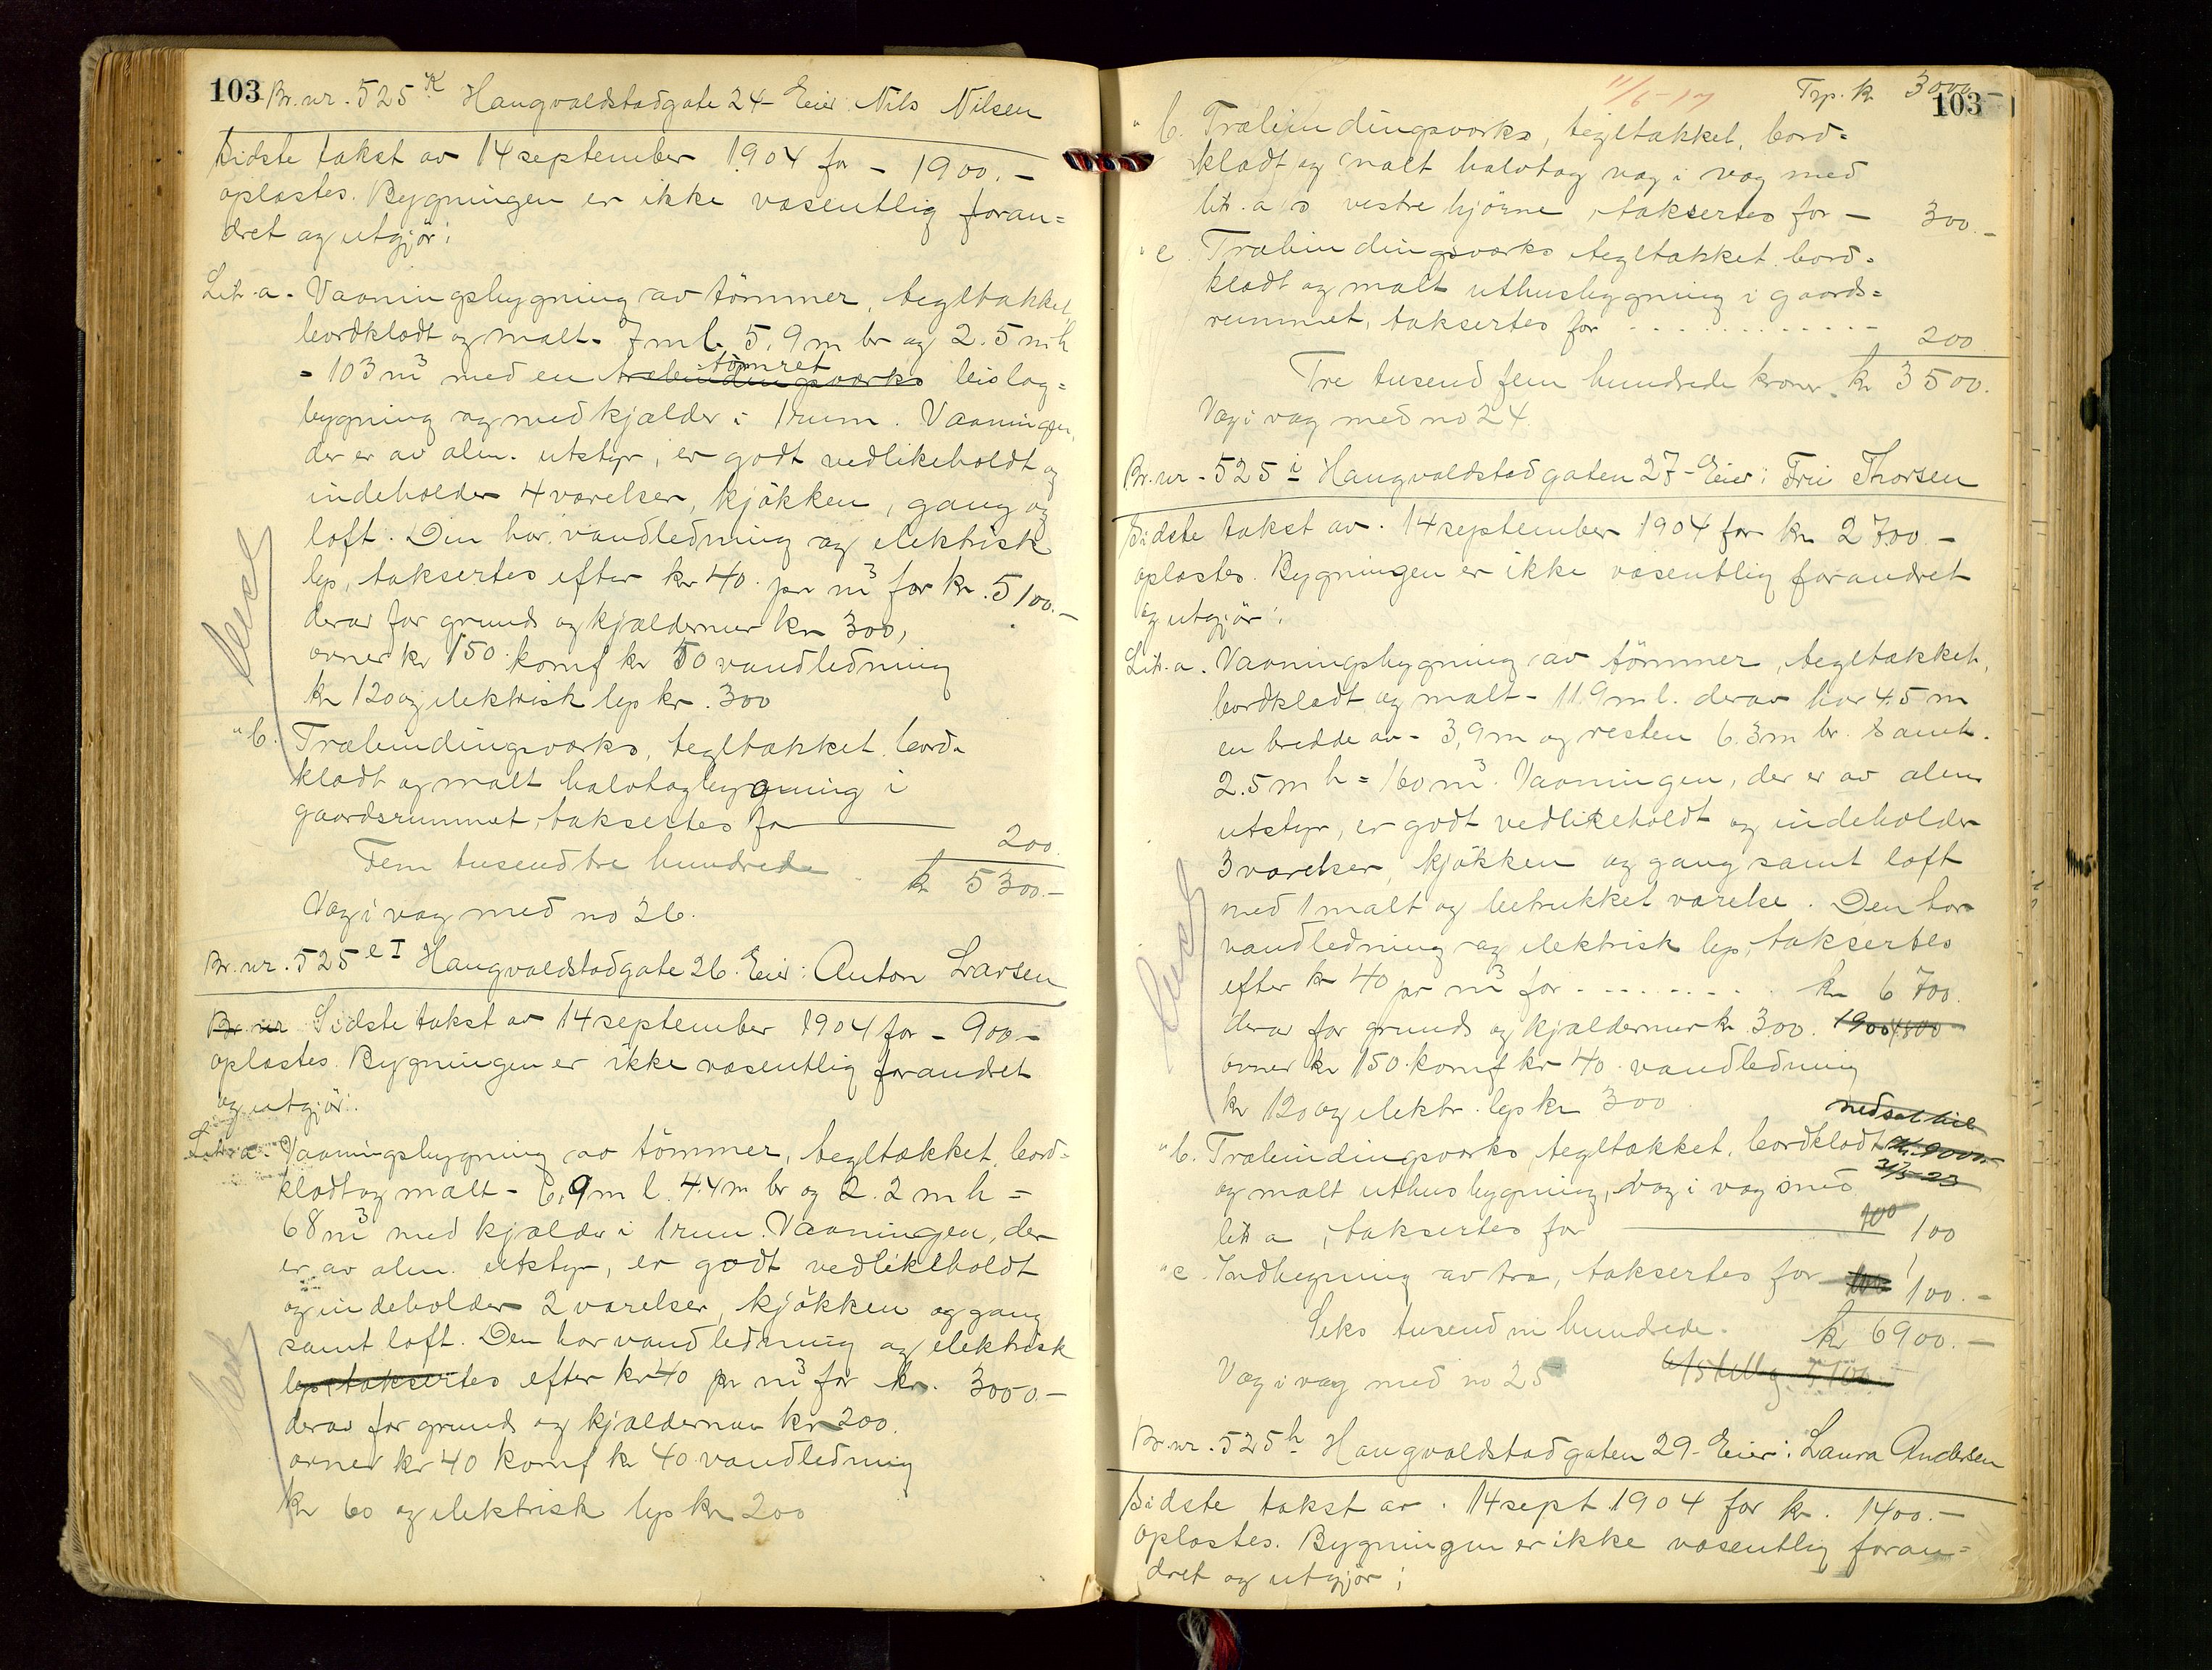 103 Br.nr. 525 K Haugvaldstadgate 24 - Eier: Nils Nilsen
Sidste takst av 14 september 1904 for - 1900.-
oplæstes. Bygningen er ikke væsentlig foran=
dret og utgjør:
Lit. a. Vaaningsbygning av tömmer, tegltækket,
bordklædt og malt. 7 m l. 5,9 m br og 2.5 m h
= 103 m³ med en træbindingsværks tömret bislag=
bygning og med kjælder i 1 rum. Vaaningen,
der er av alm. utstyr, er godt vedlikeholdt og
indeholder 4 værelser, kjökken, gang og
loft. Den har vandledning og elektrisk
lys, taksertes efter kr 40 pr m³ for kr. 5100.-
derav for grunds og kjældermur kr 300,
ovner kr 150 komf kr 50 vandledning
kr 120 og elektrisk lys kr. 300
" b. Træbindingsværks, tegltækket bord-
klædt og malt halvtagbygning i
gaardsrummet, taksertes for 200.
Fem tusend tre hundrede kr 5300.-
Væg i væg med no 26.
Br.nr. 525 e I Haugvaldstadgate 26. Eier: Anton Larsen
Br nr Sidste takst av 14 september 1904 for - 900.-
oplæstes. Bygningen er ikke væsentlig forandret
og utgjør:
Lit. a. Vaaningsbygning av tömmer, tegltækket, bord=
klædt og malt - 6,9 m l. 4.4 m br og 2.2 m h =
68 m³ med kjælder i 1 rum. Vaaningen, der
er av alm. utstyr, er godt vedlikeholdt
og indeholder 2 værelser, kjökken og gang
samt loft. Den har vandledning og elektrisk
lys, taksertes efter kr 40 pr m³ for kr. 3000.-
derav for grunds og kjældermur kr 200.
ovner kr 40 komf kr 40 vandledning
kr 60 og elektrisk lys kr 200
11/6-17 Trp. kr 3000.-
103
" b. Træbindingsværks, tegltækket, bord=
klædt og malt halvtag væg i væg med
lit. a's vestre hjörne, taksertes for - 300.-
" c. Træbindingsværks tegltækket bord=
klædt og malt uthusbygning i gaards=
rummet, taksertes for - - - - - 200
Tre tusend fem hundrede kroner. kr 3500.
Væg i væg med no 24.
Br.nr. 525 i Haugvaldstadgaten 27 - Eier: Thorsen
Sidste takst av 14 september 1904 for kr 2700.-
oplæstes. Bygningen er ikke væsentlig forandret
og utgjør:
Lit. a. Vaaningsbygning av tömmer, tegltækket,
bordklædt og malt - 11.9 m l. derav har 4.5 m
en bredde av - 3,9 m og resten 6.3 m br. samt
2.5 m h = 160 m³. Vaaningen, der er av alm
utstyr, er godt vedlikeholdt og indeholder
3 værelser, kjökken og gang samt loft
med 1 malt og betrukket værelse. Den har
vandledning og elektrisk lys, taksertes
efter kr 40 pr m³ for - - - - - kr 6700.
derav for grunds og kjældermur kr 300.
ovner kr 150. komf kr 40. vandledning
kr 120 og elektr. lys kr 300
nedsat til
" b. Træbindingsværks, tegltækket, bordklædt kr. 9000.-
og malt uthusbygning, væg i væg med
lit a, taksertes for 100
" c. Indhegning av træ, taksertes for 100.-
Seks tusend ni hundrede. kr 6900.-
Væg i væg med no 25
Br.nr. 525 h Haugvaldstadgaten 29 - Eier: Laura Andersen
Sidste takst av 14 sept 1904 for kr. 1400.-
oplæstes. Bygningen er ikke væsentlig foran=
dret og utgjør: